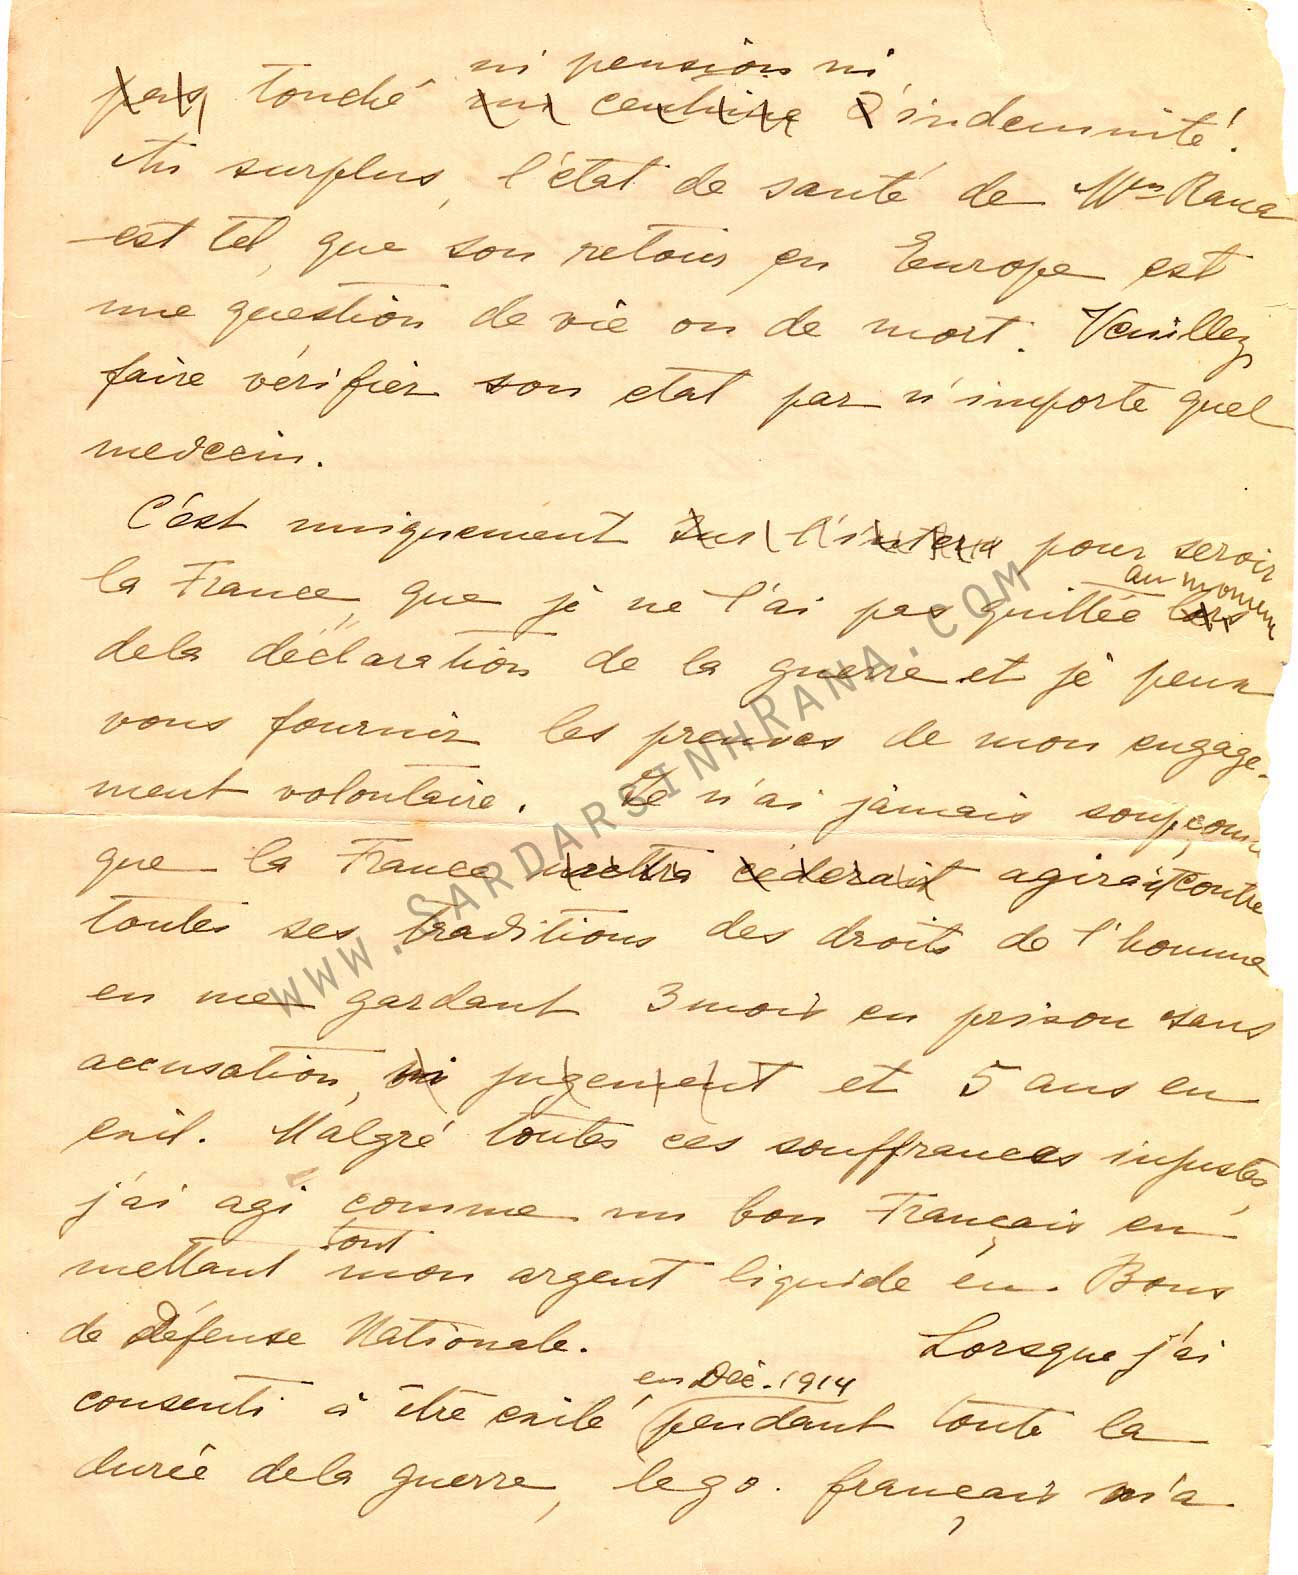 ni pension ni
pas touché un centime d'indemnité.
Au surplus, l'état de santé de Mme Rana
est tel, que son retour en Europe est
une question de vie ou de mort. Veuillez
faire vérifier son etat par n'importe quel
medecin.
C'est uniquement sur l'intera pour servir
la France, que je ne l'ai pas quittée lors au moment
dela déclaration de la guerre et je peux
vous fournir les preuves de mon engage-
ment volontaire. Je n'ai jamais soupçonné
que la France mettra céderait agirait contre
toutes ses traditions des droits de l'homme
en me gardant 3 mois en prison sans
accusation, ni jugement et 5 ans en
exil. Malgré toutes ces souffrances injustes,
j'ai agi comme un bon Français en
tout
mettant mon argent liquide en Bons
de Défense Nationale. Lorsque j'ai
en Déc. 1914
consenti à être exilé (pendant toute la
durée dela guerre, le go. français m'a
www.SardarsinhRana.com